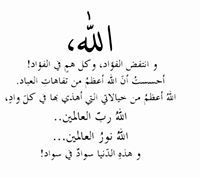 الله،
و انتفض الفؤاد، وكل همٍ في الفؤاد!
أحسستُ أنّ الله أعظمُ من تفاهاتِ العباد.
اللهُ أعظمُ من خيالاتي التي أهذي بها في كلّ وادٍ،
اللهُ ربّ العالمين..
اللهُ نورُ العالمين...
و هذهِ الدّنيا سوادٌ في سواد!